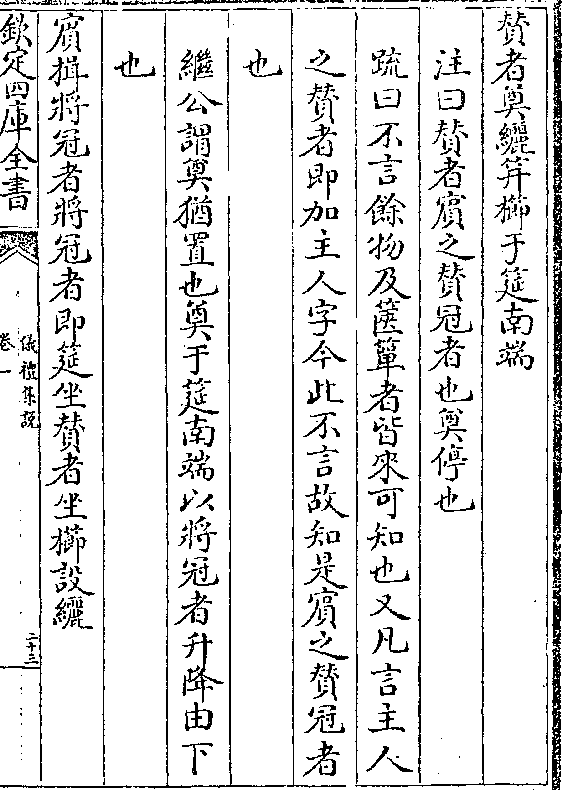 贊者奠纚笄櫛于筵南端
注曰贊者賔之贊冠者也奠停也
疏曰不言餘物及篋簞者皆來可知也又凡言主人
之贊者即加主人字今此不言故知是賔之贊冠者
也
繼公謂奠猶置也奠于筵南端以將冠者升降由下
也
賔揖將冠者將冠者即筵坐贊者坐櫛設纚
欽定四庫全書
儀禮集說
卷一
二十三